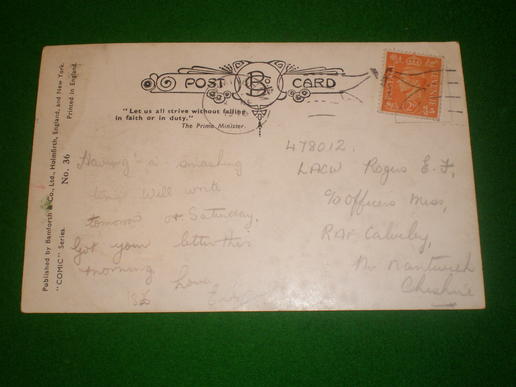 POST CARD
"Let us all strive without failing
in faith or in duty."
The Prime Minister.
Published by Bamforth & Co., Ltd., Holmfirth, England, and New York.
"COMIC" Series.
No. 36
Printed in England.
Having a smashing
time Will write
tomorrow or Saturday.
Got your letter this
morning Love
478012.
LACW Rogers E. F,
c/o Officers Mess,
RAF Calveley,
Nr Nantwich
Cheshire